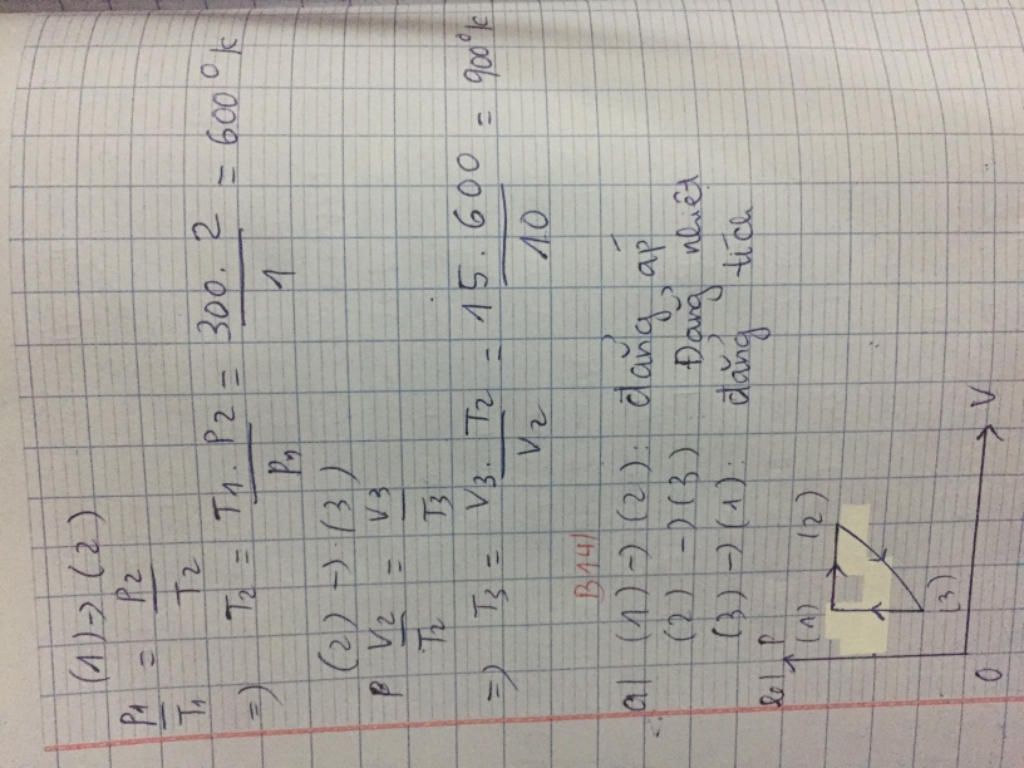 (1) → (2)
P1/T1 = P2/T2
=) T2 = T1. P2/P1 = 300. 2/1 = 600°k
(2) → (3)
P V2/T2 = V3/T3
=) T3 = V3. T2/V2 = 15. 600/10 = 900°k
B14)
a| (1) → (2): đẳng áp
(2) → (3) Đẳng nhiệt
(3) → (1): đẳng tích
b| P
(1) (2)
(3)
O V